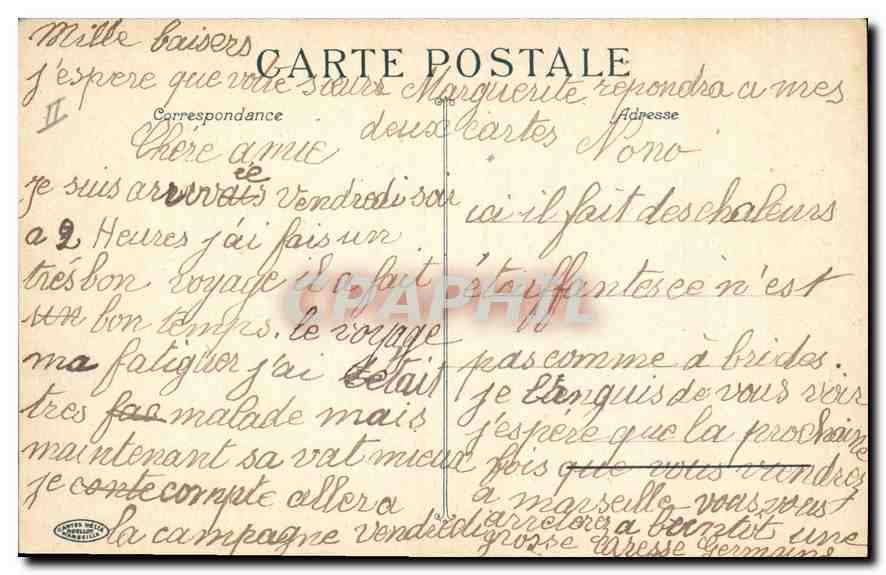 Mille baisers
CARTE POSTALE
j'espere que votre sœur Marguerite repondra a mes
deux cartes Nono
II
Correspondance
Adresse
Chére amie
Je suis arrivée vendredi soir
a 9 Heures j'ai fais un
trés bon voyage il a fait
un bon temps. le voyage
ma fatiguer j'ai était
tres fac malade mais
maintenant sa vat mieux
je conte compte aller a
la campagne vendredi
ici il fait des chaleurs
étouffantes cè n'est
pas comme à brides.
je languis de vous voir
j'espére que la prochaine
fois que vous vendrez
a marseille vous vous
arreterez a bientôt une
grosse Caresse Germaine
CARTES HELIA
MARSEILLE
CPAPHIL